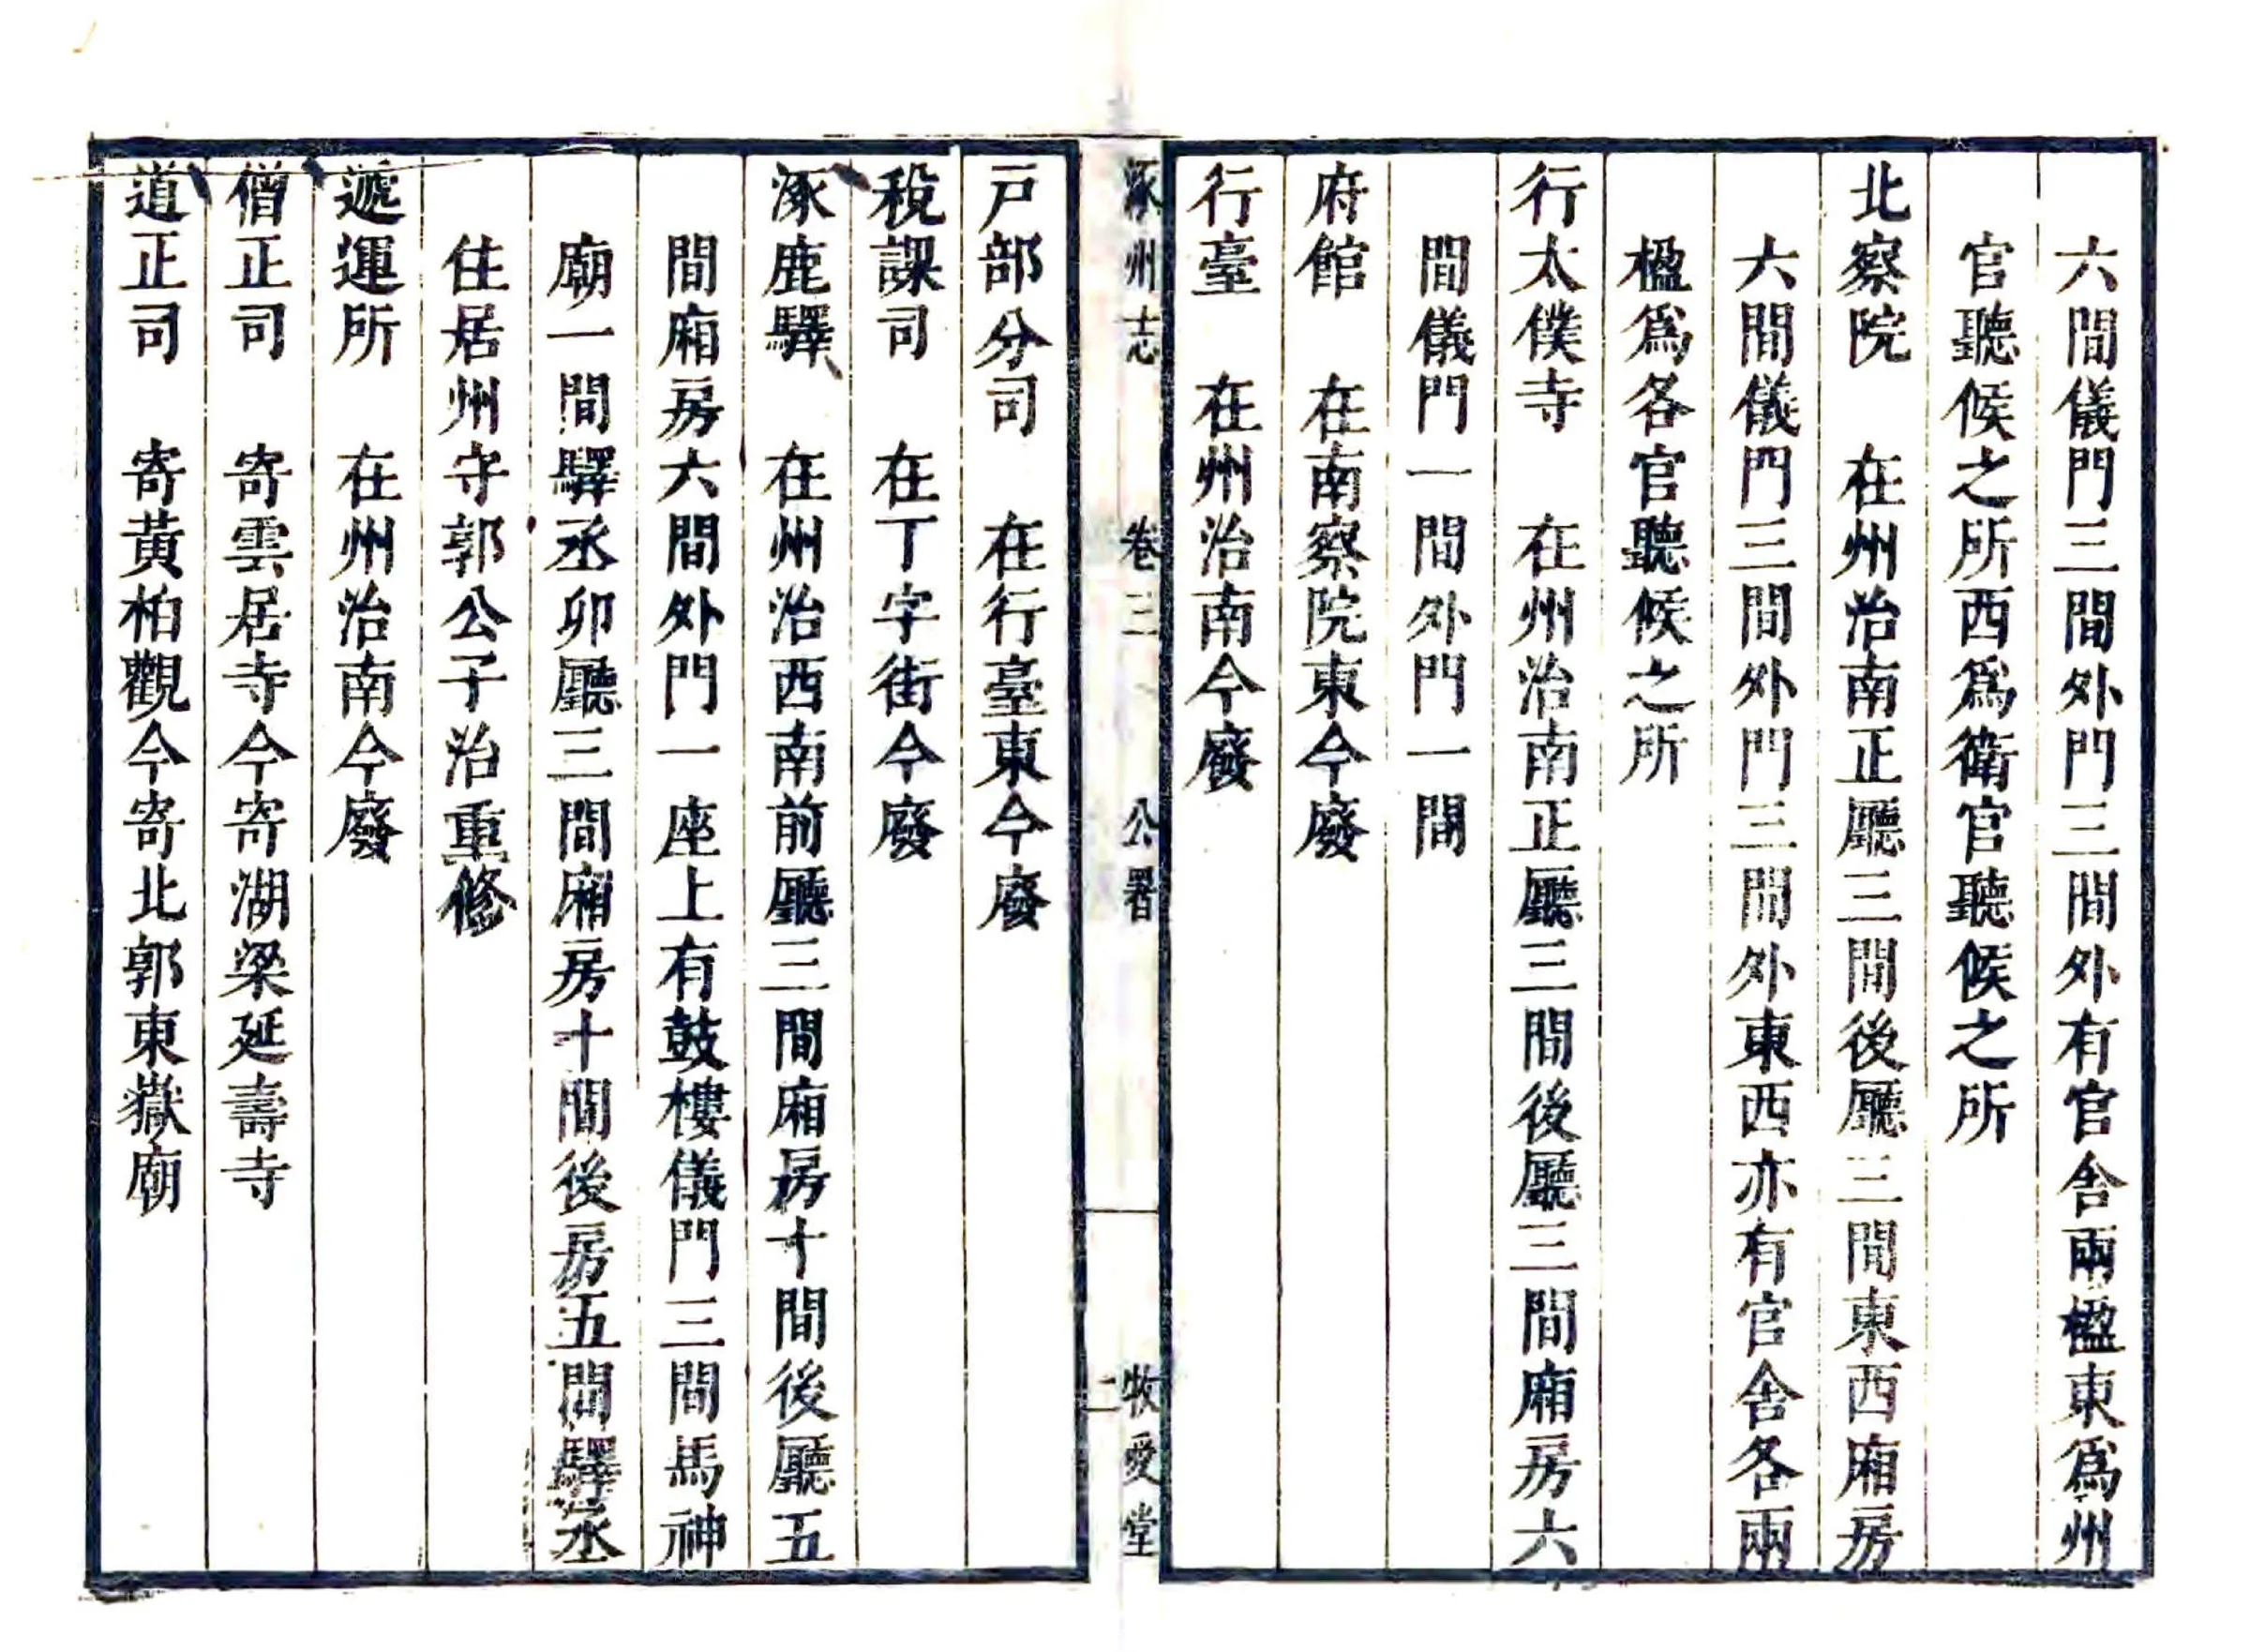 六間儀門三間外門三間外有官舍兩楹東爲州
官聽候之所西爲衛官聽候之所
北察院　在州治南正廳三間後廳三間東西廂房
六間儀門三間外門三間外東西亦有官舍各兩
楹爲各官聽候之所
行太僕寺　在州治南正廳三間後廳三間廂房六
間儀門一間外門一間
府館　在南察院東今廢
行臺　在州治南今廢
涿州志　卷三　公署　二　牧愛堂
戸部分司　在行臺東今廢
稅課司　在丁字街今廢
涿鹿驛　在州治西南前廳三間廂房十間後廳五
間廂房六間外門一座上有鼓樓儀門三間馬神
廟一間驛丞卯廳三間廂房十間後房五間驛丞
住居州守郭公子治重修
遞運所　在州治南今廢
僧正司　寄雲居寺今寄湖梁延壽寺
道正司　寄黃柏觀今寄北郭東嶽廟